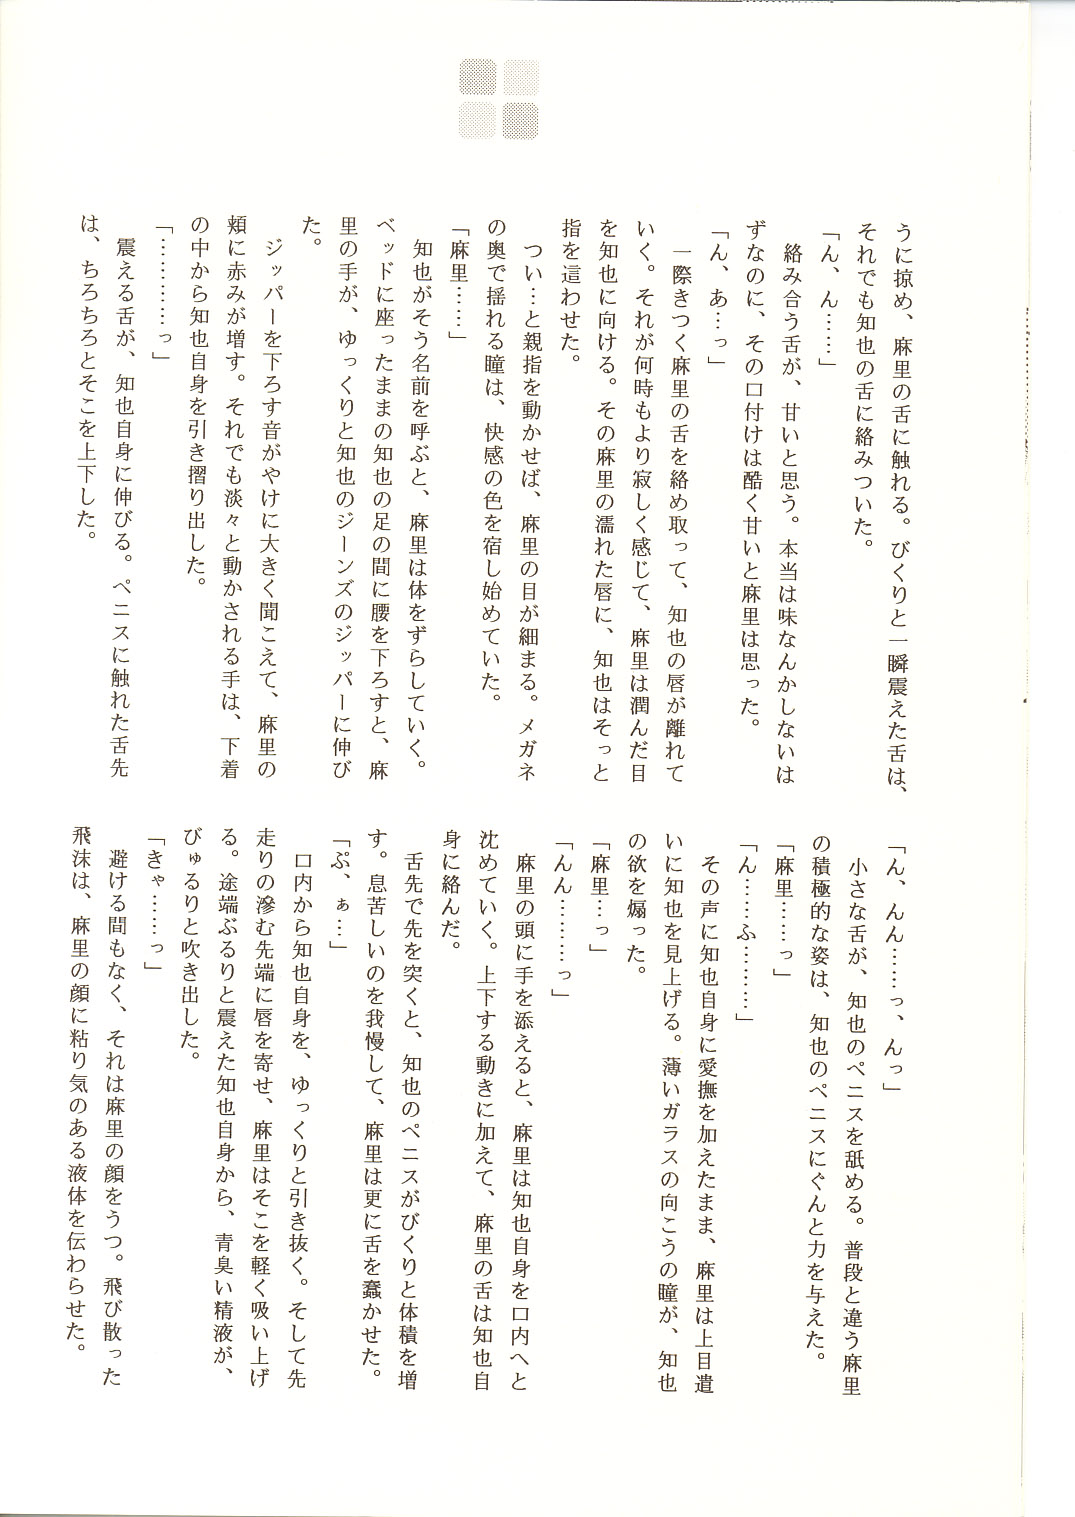 うに掠め、麻里の舌に触れる。びくりと一瞬震えた舌は、
それでも知也の舌に絡みついた。
「ん、ん……」
絡み合う舌が、甘いと思う。本当は味なんかしないは
ずなのに、その口付けは酷く甘いと麻里は思った。
「ん、あ…っ」
一際きつく麻里の舌を絡め取って、知也の唇が離れて
いく。それが何時もより寂しく感じて、麻里は潤んだ目
を知也に向ける。その麻里の濡れた唇に、知也はそっと
指を這わせた。
つい…と親指を動かせば、麻里の目が細まる。メガネ
の奥で揺れる瞳は、快感の色を宿し始めていた。
「麻里……」
知也がそう名前を呼ぶと、麻里は体をずらしていく。
ベッドに座ったままの知也の足の間に腰を下ろすと、麻
里の手が、ゆっくりと知也のジーンズのジッパーに伸び
た。
ジッパーを下ろす音がやけに大きく聞こえて、麻里の
頬に赤みが増す。それでも淡々と動かされる手は、下着
の中から知也自身を引き摺り出した。
「…………っ」
震える舌が、知也自身に伸びる。ペニスに触れた舌先
は、ちろちろとそこを上下した。
「ん、んん……っ、んっ」
小さな舌が、知也のペニスを舐める。普段と違う麻里
の積極的な姿は、知也のペニスにぐんと力を与えた。
「麻里……っ」
「ん……ふ………」
その声に知也自身に愛撫を加えたまま、麻里は上目遣
いに知也を見上げる。薄いガラスの向こうの瞳が、知也
の欲を煽った。
「麻里…っ」
「んん………っ」
麻里の頭に手を添えると、麻里は知也自身を口内へと
沈めていく。上下する動きに加えて、麻里の舌は知也自
身に絡んだ。
舌先で先を突くと、知也のペニスがびくりと体積を増
す。息苦しいのを我慢して、麻里は更に舌を蠢かせた。
「ぷ、ぁ…」
口内から知也自身を、ゆっくりと引き抜く。そして先
走りの滲む先端に唇を寄せ、麻里はそこを軽く吸い上げ
る。途端ぶるりと震えた知也自身から、青臭い精液が、
びゅるりと吹き出した。
「きゃ……っ」
避ける間もなく、それは麻里の顔をうつ。飛び散った
飛沫は、麻里の顔に粘り気のある液体を伝わらせた。